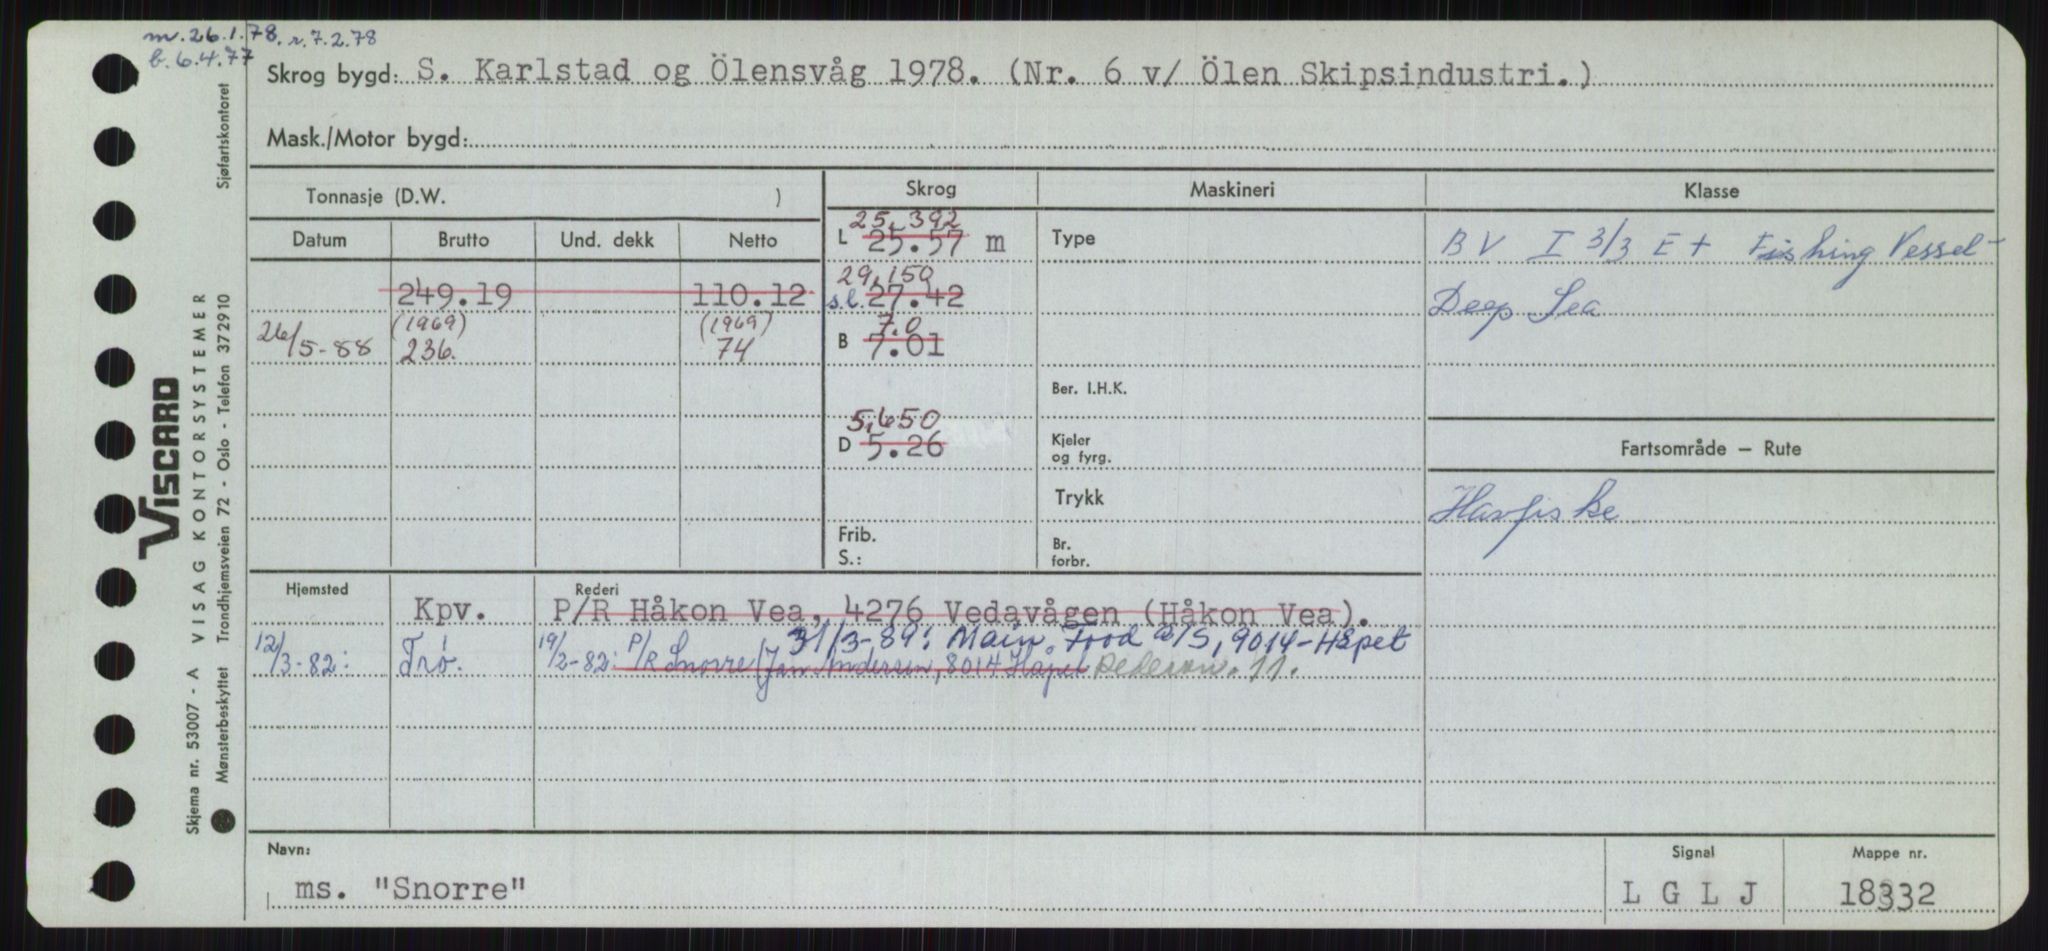 m. 26.1.78. r. 7.2.78
b. 6.4.77
Skrog bygd: S. Karlstad og Ölensvåg 1978. (Nr. 6 v/ Ölen Skipsindustri.)
Mask./Motor bygd:
Tonnasje (D.W. )
Skrog
Maskineri
Klasse
Datum
Brutto
Und. dekk
Netto
249.19
110.12
26/5-88
(1969)
236.
(1969)
74
25,392
L 25.57 m
29,150
s.l. 27.42
7.0
B 7.01
5,650
D 5.26
Frib.
S.:
Type
Ber. I.H.K.
Kjeler
og fyrg.
Trykk
Br.
forbr.
BV I 3/3 E + Fishing Vessel -
Deep Sea
Fartsområde — Rute
Havfiske
Hjemsted
Rederi
Kpv.
P/R Håkon Vea, 4276 Vedavågen (Håkon Vea).
31/3-89: Main Food a/s, 9014-Håpet
12/3-82: Trø.
19/2-82: P/R Snorre (Jan Andersen, 8014 Håpet
11.
Navn:
ms. "Snorre"
Signal
L G L J
Mappe nr.
18332
VISCARD
VISAG KONTORSYSTEMER
Skjema nr. 53007 - A
Mønsterbeskyttet
Trondhjemsveien 72 - Oslo - Telefon 372910
Sjøfartskontoret